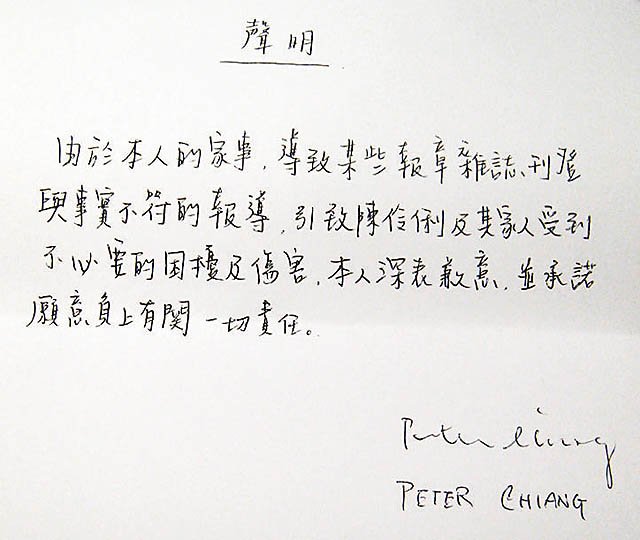 聲明
由於本人的家事，導致某些報章雜誌、刊登
與事實不符的報導，引致陳伶俐及其家人受到
不必要的困擾及傷害，本人深表歉意，並承諾
願意負上有関一切責任。
Peter Chiang
PETER CHIANG